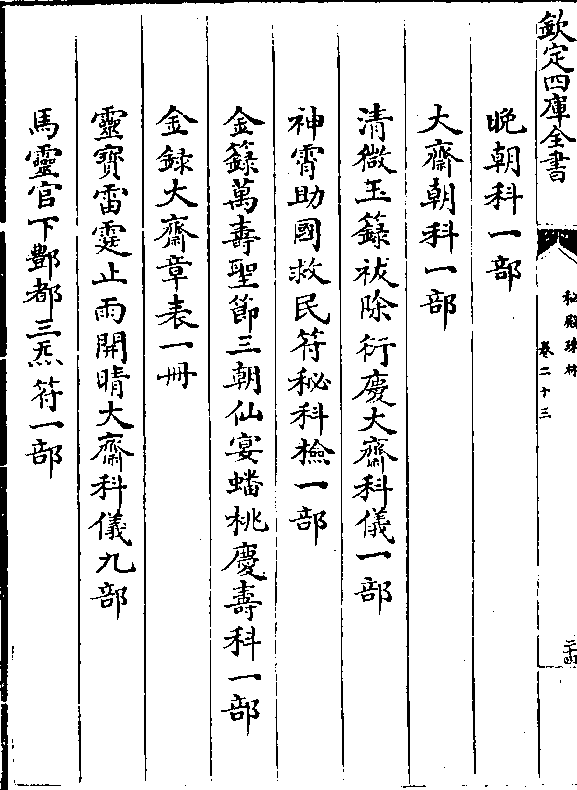 欽定四庫全書
秘殿珠林
卷二十三
二十四
晚朝科一部
大齋朝科一部
清微玉籙祓除衍慶大齋科儀一部
神霄助國救民符秘科檢一部
金籙萬壽聖節三朝仙宴蟠桃慶壽科一部
金録大齋章表一冊
靈寶雷霆止雨開晴大齋科儀九部
馬靈官下酆都三炁符一部